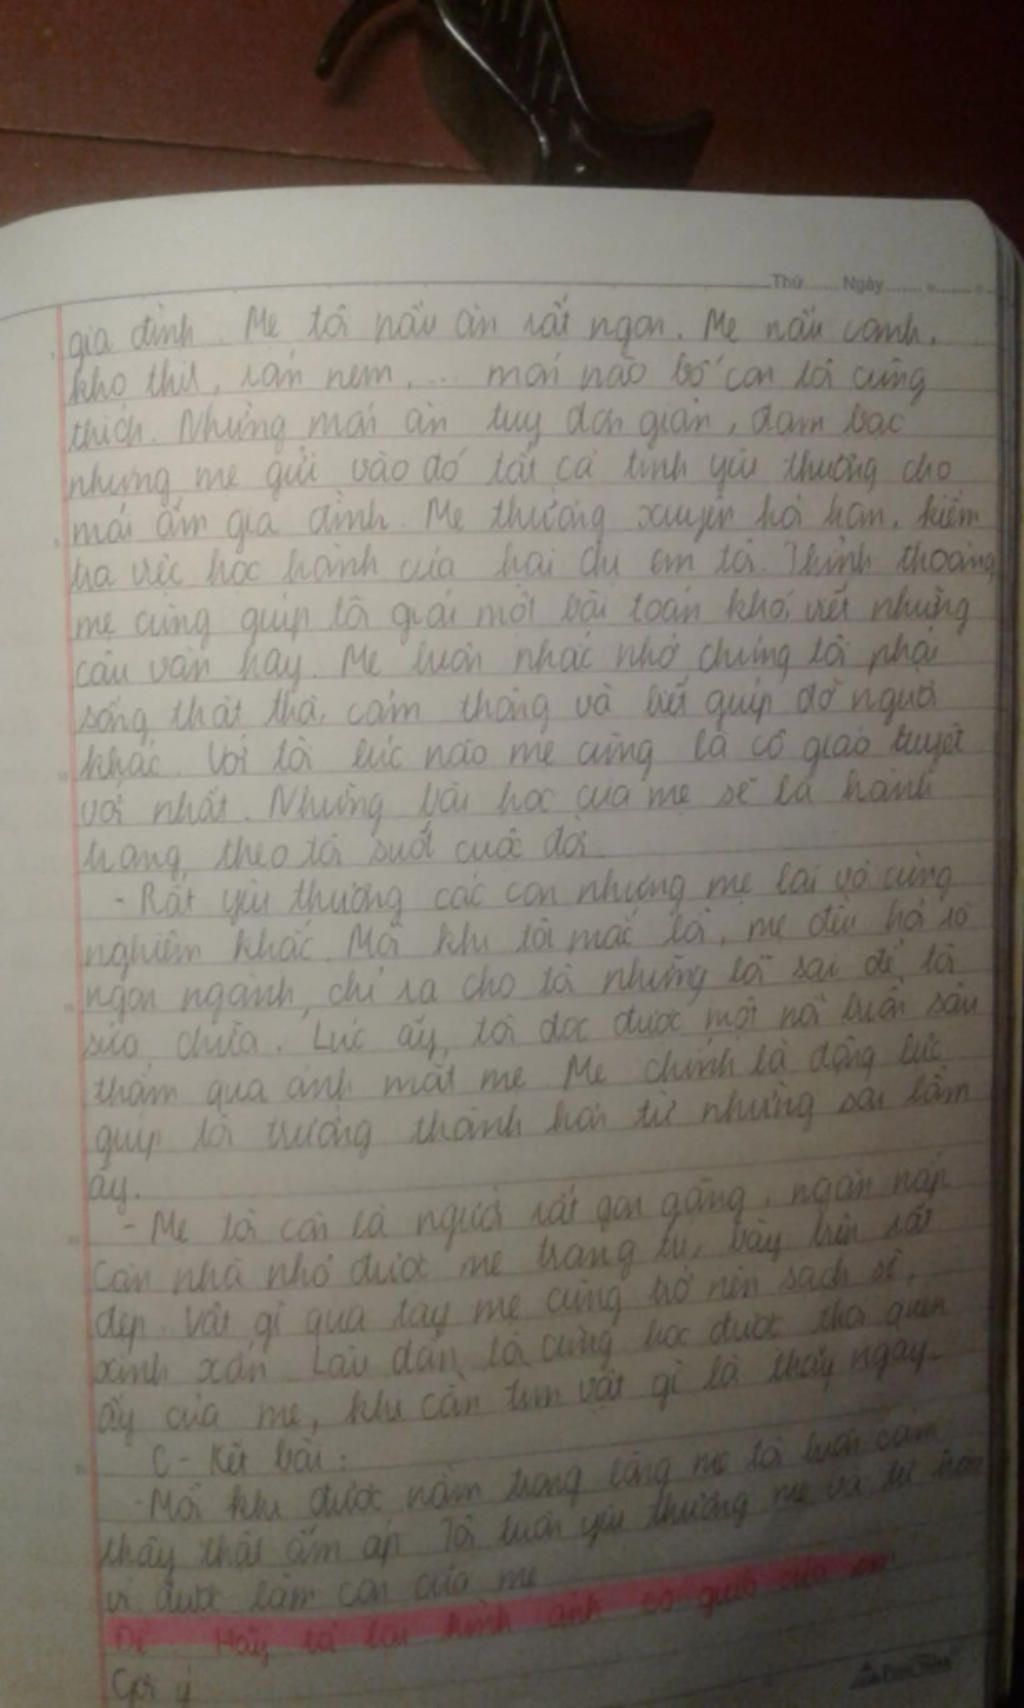 Thứ ...... Ngày ......
gia đình. Mẹ tôi nấu ăn rất ngon. Mẹ nấu canh,
kho thịt, rán nem, ... món nào bố con tôi cũng
thích. Những món ăn tuy đơn giản, đạm bạc
nhưng mẹ gửi vào đó tất cả tình yêu thương cho
mái ấm gia đình. Mẹ thường xuyên hỏi han, kiểm
tra việc học hành của hai chị em tôi. Thỉnh thoảng
mẹ cũng giúp tôi giải một bài toán khó, viết những
câu văn hay. Mẹ luôn nhắc nhở chúng tôi phải
sống thật thà, cảm thông và biết giúp đỡ người
khác. Với tôi lúc nào mẹ cũng là cô giáo tuyệt
vời nhất. Những bài học của mẹ sẽ là hành
trang, theo tôi suốt cuộc đời.
- Rất yêu thương các con nhưng mẹ lại vô cùng
nghiêm khắc. Mỗi khi tôi mắc lỗi, mẹ đều hỏi rõ
ngọn ngành, chỉ ra cho tôi những lỗi sai để tôi
sửa chữa. Lúc ấy, tôi đọc được một nỗi buồn sâu
thẳm qua ánh mắt mẹ. Mẹ chính là động lực
giúp tôi trưởng thành hơn từ những sai lầm
ấy.
- Mẹ tôi còn là người rất gọn gàng, ngăn nắp.
Căn nhà nhỏ được mẹ trang trí, bày biện rất
đẹp. Vật gì qua tay mẹ cũng trở nên sạch sẽ,
xinh xắn. Lâu dần, tôi cũng học được thói quen
ấy của mẹ, khi cần tìm vật gì là thấy ngay.
C - Kết bài:
- Mỗi khi được nằm trong lòng mẹ tôi luôn cảm
thấy thật ấm áp. Tôi luôn yêu thương mẹ và tự hào
vì được làm con của mẹ
Đề: Hãy tả lại hình ảnh cô giáo của em
Gợi ý